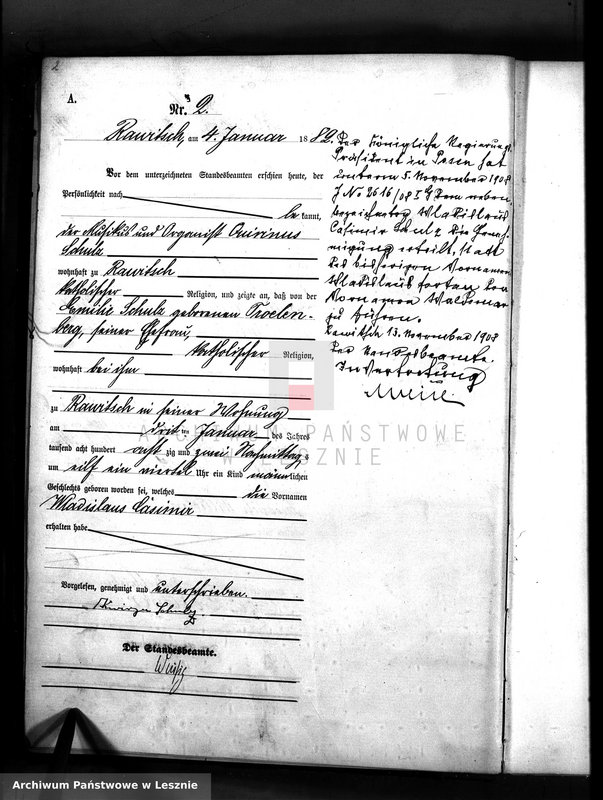 2
A.
Nr. 2.
Rawitsch, am 4. Januar 1882.
Vor dem unterzeichneten Standesbeamten erschien heute, der
Persönlichkeit nach
be kannt,
der Musikus und Organist Quirinus
Schulz
wohnhaft zu Rawitsch
katholischer Religion, und zeigte an, daß von der
Emilie Schulz geborenen Troelen-
berg, seiner Ehefrau,
katholischer Religion,
wohnhaft bei ihm
zu Rawitsch in seiner Wohnung
am drit ten Januar des Jahres
tausend acht hundert acht zig und zwei Nachmittags
um eilf ein viertel Uhr ein Kind männlichen
Geschlechts geboren worden sei, welches die Vornamen
Wladislaus Casimir
erhalten habe
Vorgelesen, genehmigt und unterschrieben.
Schulz
Der Standesbeamte.
Der Königliche Regierungs
Präsident in Posen hat
unterm 5. November 1908
J No 2616/08 I G dem neben-
bezeichneten Wladislaus
Casimir Schulz die Geneh-
migung erteilt, statt
des bisherigen Vornamens
Wladislaus fortan den
Vornamen Waldemar
zu führen.
Rawitsch 13. November 1908
Der Standesbeamte.
In Vertretung
ARCHIWUM PAŃSTWOWE
W LESZNIE
Archiwum Państwowe w Lesznie